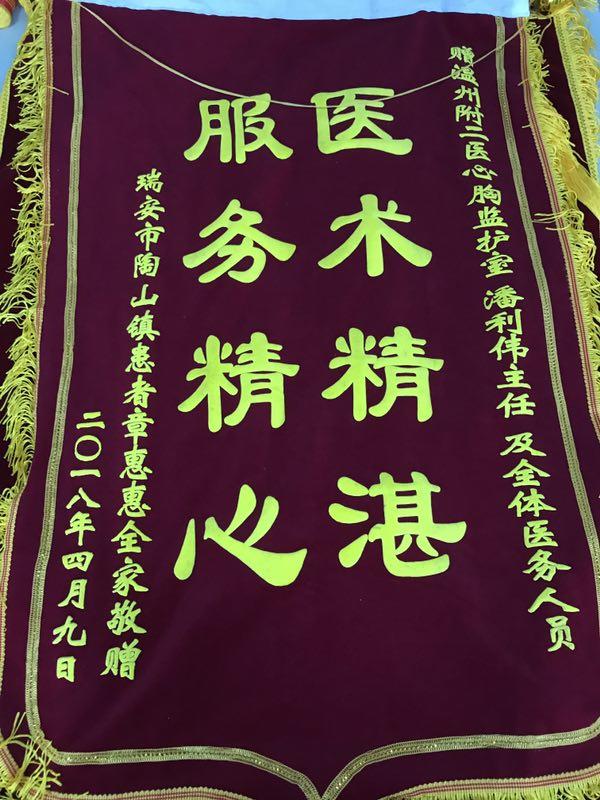 赠温州附二医心胸监护室 潘利伟主任 及全体医务人员
医术精湛
服务精心
瑞安市陶山镇患者章惠惠全家敬赠
二〇一八年四月九日